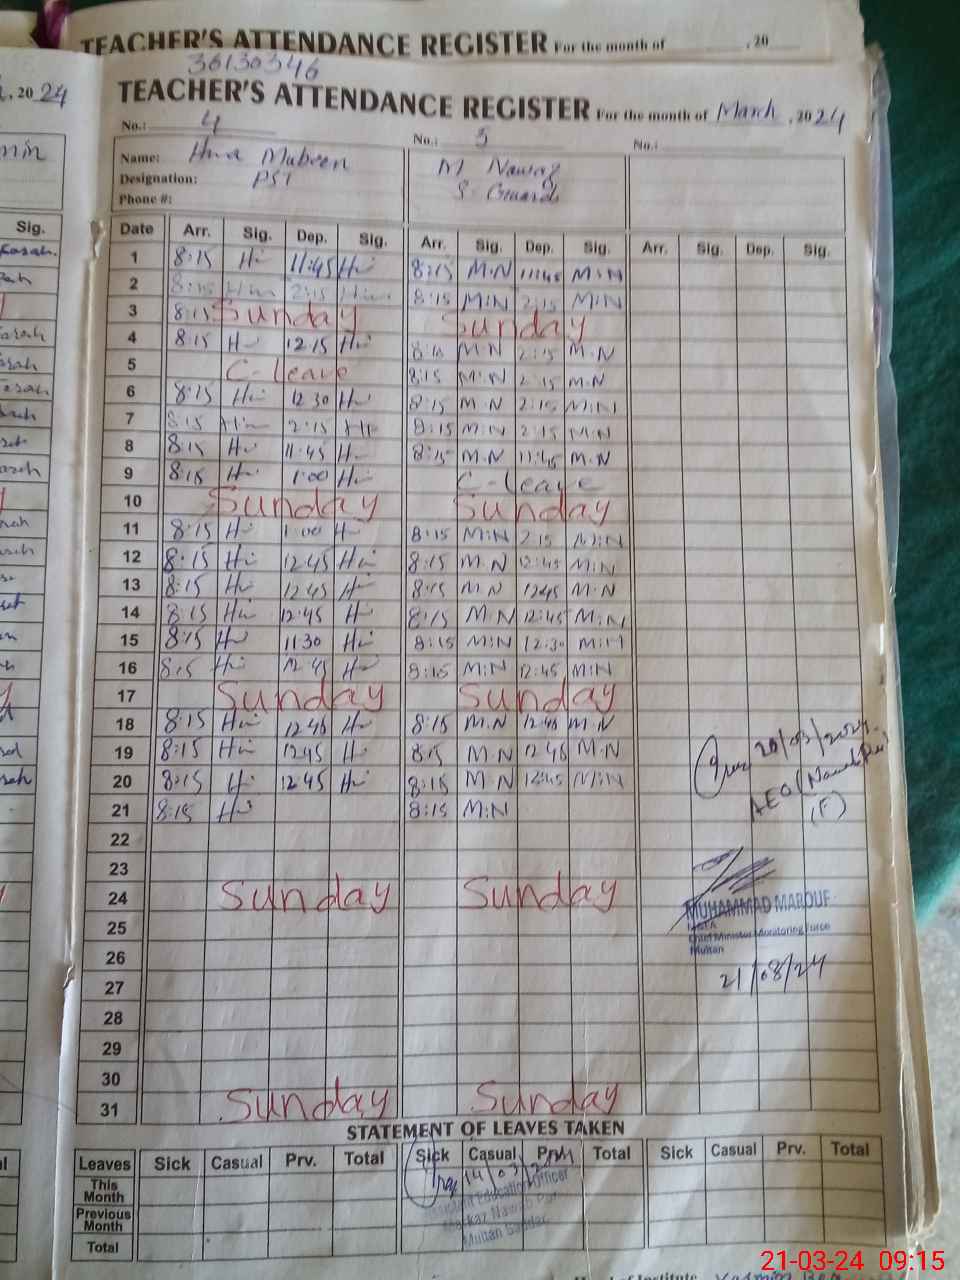 TEACHER'S ATTENDANCE REGISTER For the month of , 20
36130346
TEACHER'S ATTENDANCE REGISTER For the month of March, 2024
, 2024
No.: 4 No.: 5 No.:
Name: Hina Mubeen M Nawaz
Designation: PST S. Guard
Phone #:
Sig.
Date Arr. Sig. Dep. Sig. Arr. Sig. Dep. Sig. Arr. Sig. Dep. Sig.
1 8:15 Hi 11:45 Hi 8:15 M.N 11:45 M.N
2 8:15 2:15 8:15 M.N 2:15 M.N
3 8:15 Sunday Sunday
4 8:15 Hi 12:15 Hi 8:15 M.N 2:15 M.N
5 C-leave 8:15 M.N 2:15 M.N
6 8:15 Hi 12:30 Hi 8:15 M.N 2:15 M.N
7 8:15 2:15 8:15 M.N 2:15 M.N
8 8:15 Hi 11:45 Hi 8:15 M.N 11:45 M.N
9 8:15 Hi 1:00 Hi C-leave
10 Sunday Sunday
11 8:15 Hi 1:00 Hi 8:15 M.N 2:15 M.N
12 8:15 Hi 12:45 Hi 8:15 M.N 12:45 M.N
13 8:15 Hi 12:45 Hi 8:15 M.N 12:45 M.N
14 8:15 Hi 12:45 Hi 8:15 M.N 12:45 M.N
15 8:15 Hi 11:30 Hi 8:15 M.N 12:30 M.N
16 8:15 Hi 12:45 Hi 8:15 M.N 12:45 M.N
17 Sunday Sunday
18 8:15 Hi 12:45 Hi 8:15 M.N 12:45 M.N
19 8:15 Hi 12:45 Hi 8:15 M.N 12:45 M.N
20 8:15 Hi 12:45 Hi 8:15 M.N 12:45 M.N
21 8:15 Hi 8:15 M.N
20/03/2024
AEO (
(F)
22
23
24 Sunday Sunday
25
26
27
28
29
30
31 Sunday Sunday
MUHAMMAD MAROUF
Chief Minister Monitoring Force
Multan
21/08/24
STATEMENT OF LEAVES TAKEN
Leaves Sick Casual Prv. Total Sick Casual Prv. Total Sick Casual Prv. Total
This Month
Previous Month
Total
14/03/2024
Assistant Education Officer
Markaz Nawab Pur
Multan Saddar
of Institute
21-03-24 09:15